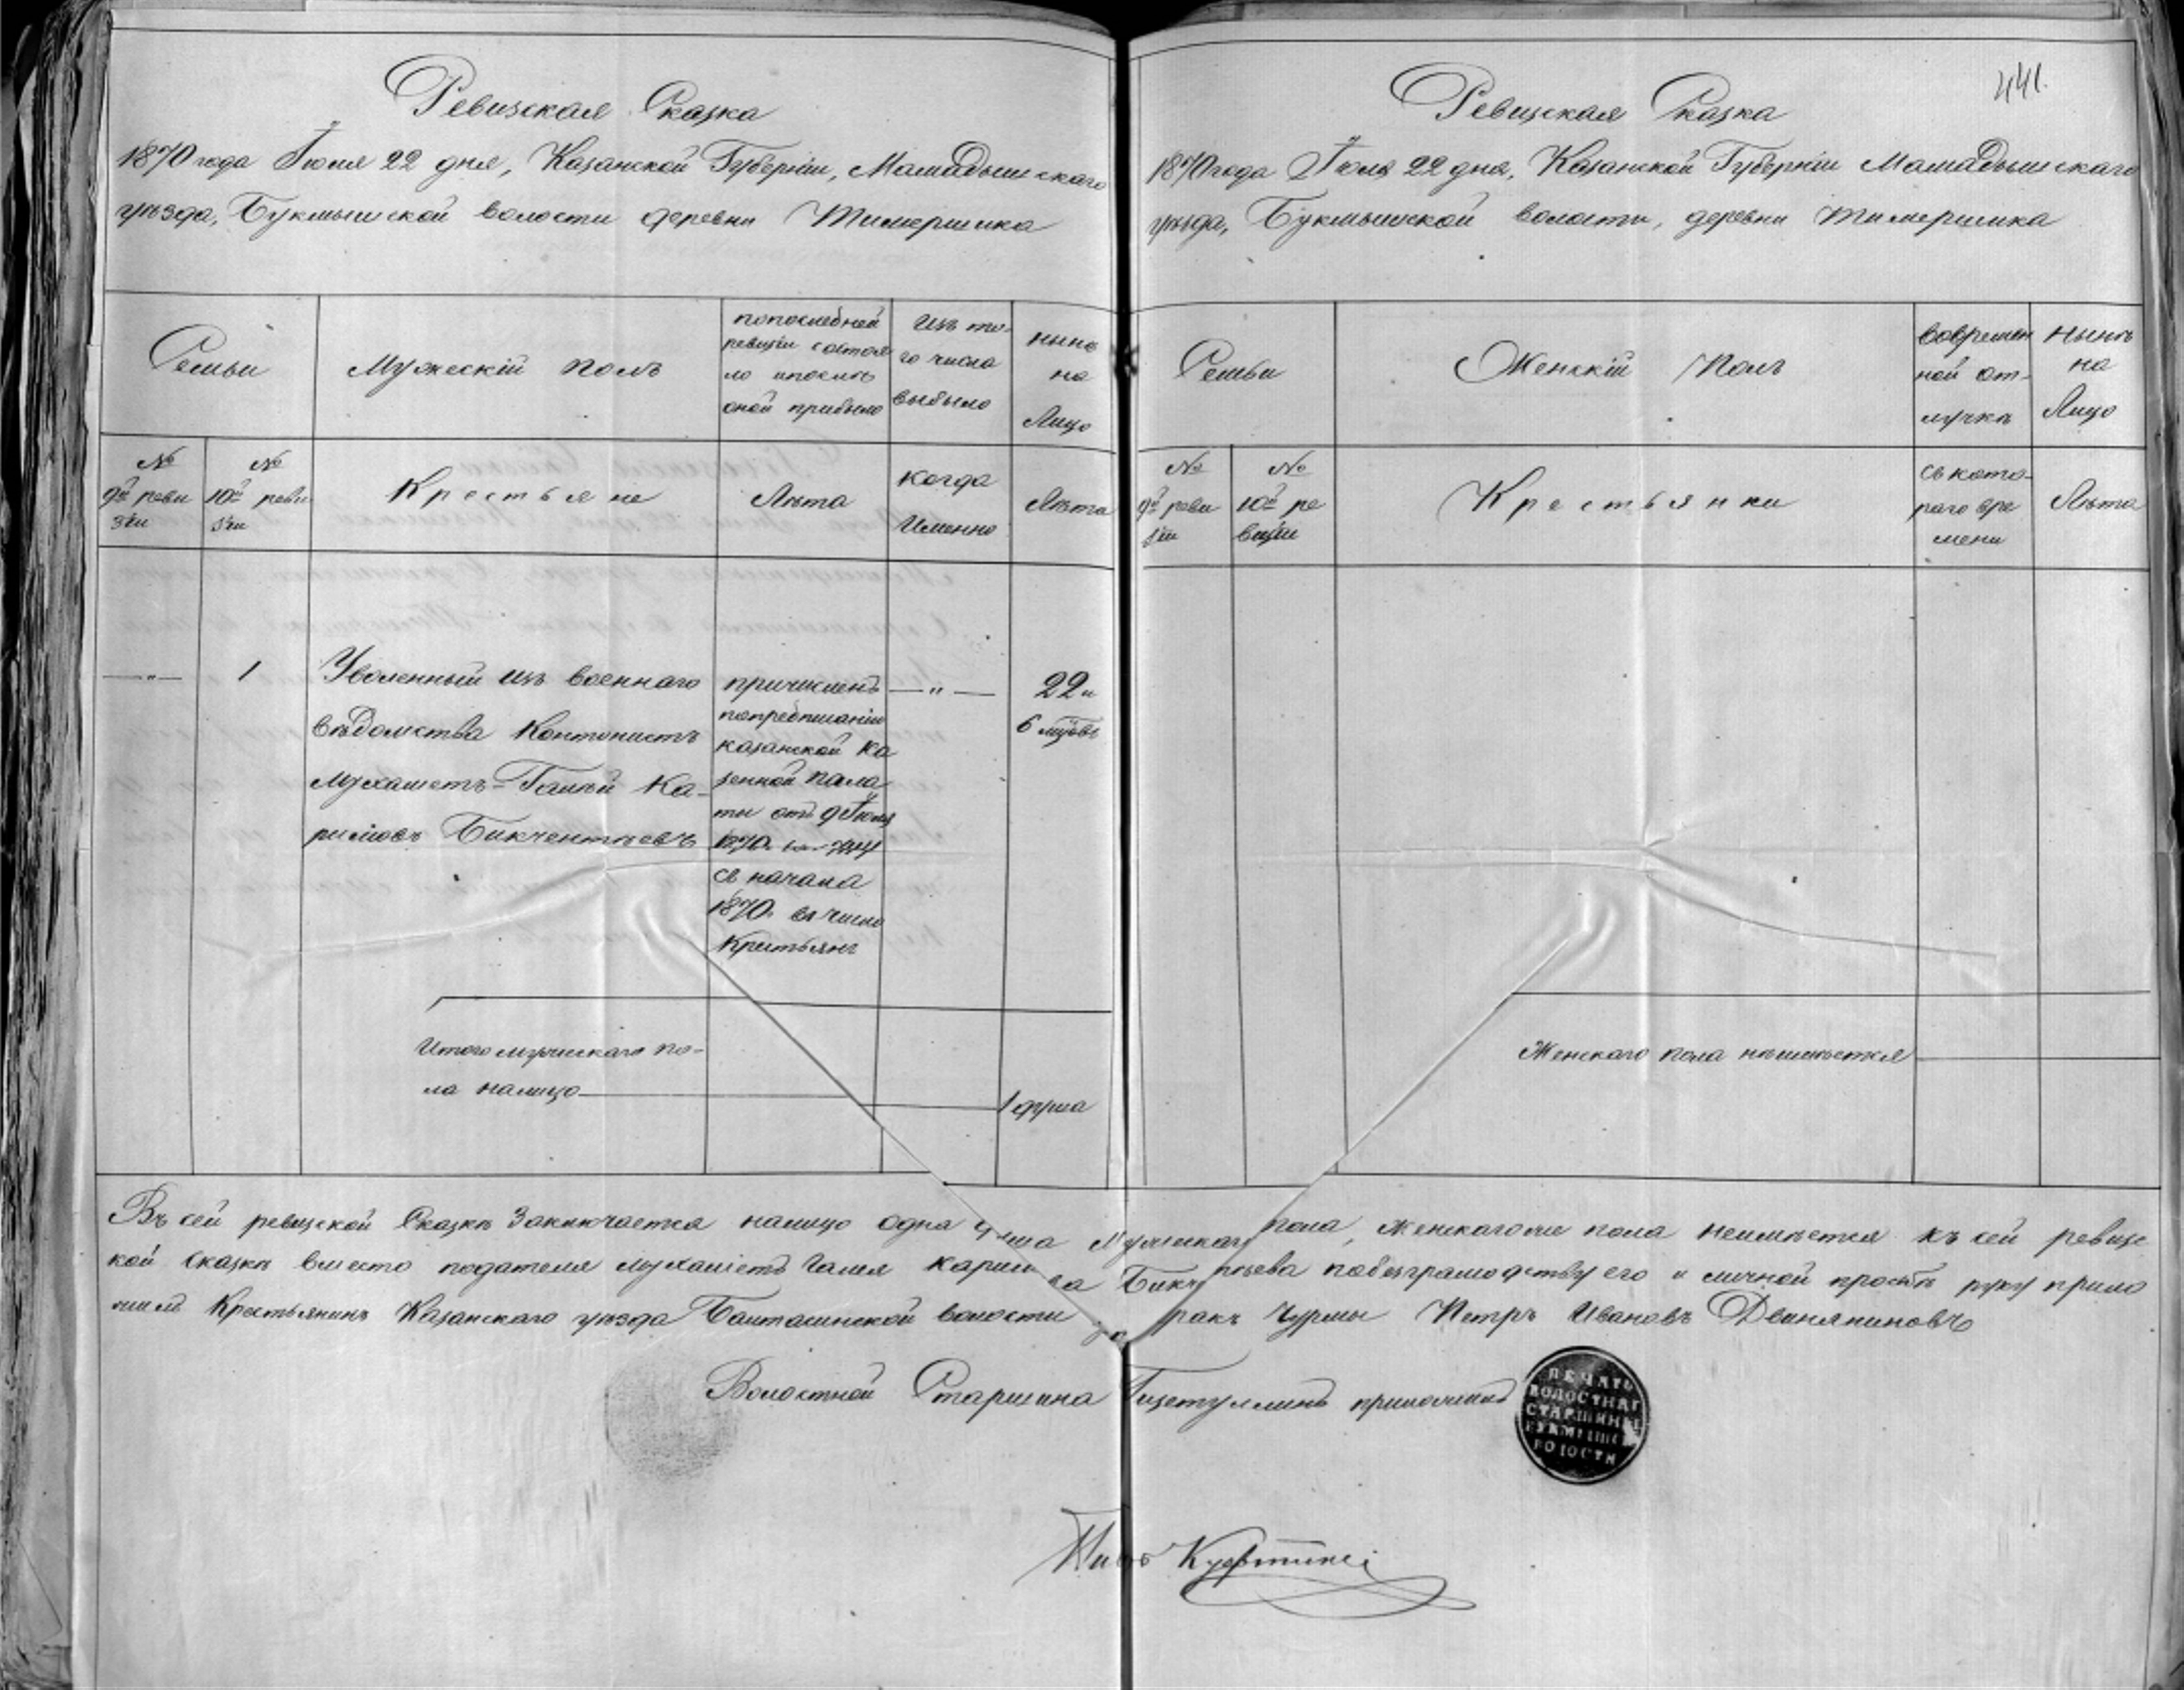 Ревизская Сказка
1870 года Іюля 22 дня, Казанской Губерніи, Мамадышскаго
уѣзда, Букмышской волости деревни Тимершика
Семьи
Мужескій полъ
попоследней
ревизіи состоя
ло ипослѣ
оной прибыло
Изъ то-
го числа
выбыло
нынѣ
на
Лицо
№
9й реви
зіи
№
10й реви
зіи
Крестьяне
Лѣта
когда
Именно
Лѣта
—„—
1
Уволенный изъ военнаго
вѣдомства Контонистъ
Мухаметъ-Галѣй Ка-
римовъ Бикчентѣевъ
причисленъ
попредписанію
казанской ка
зенной пала
ты отъ 9 Іюля
1870.
съ начала
1870. въ число
Крестьянъ
—„—
22 и
6 мцовъ
Итого мужескаго по-
ла налицо
1 душа
441.
Ревизская Сказка
1870 года Іюля 22 дня, Казанской Губерніи Мамадышскаго
уѣзда, Букмышской волости, деревни Тимершика
Семьи
Женскій Полъ
вовремен
ной от-
лучкѣ
Нынѣ
на
Лицо
№
9й реви
зіи
№
10й ре
визіи
Крестьянки
съ кото-
раго вре
мени
Лѣта
Женскаго пола неимѣется
Въ сей ревизской Сказкѣ Заключается налицо одна душа Мужескаго пола, женскагоже пола неимѣется къ сей ревизс
кой сказкѣ вместо подателя Мухаметъ Галея Карим ва Бикч тѣева побезграмотству его и личной прозбѣ руку прило
жилъ Крестьянинъ Казанскаго уѣзда Балтасинской волости Чурмы Петръ Ивановъ Двиняниновъ
Волостной Старшина Гизетуллинъ приложилъ
ПЕЧАТЬ
ВОЛОСТНАГ
СТАРШИНЫ
БУКМЫШС
ВОЛОСТИ